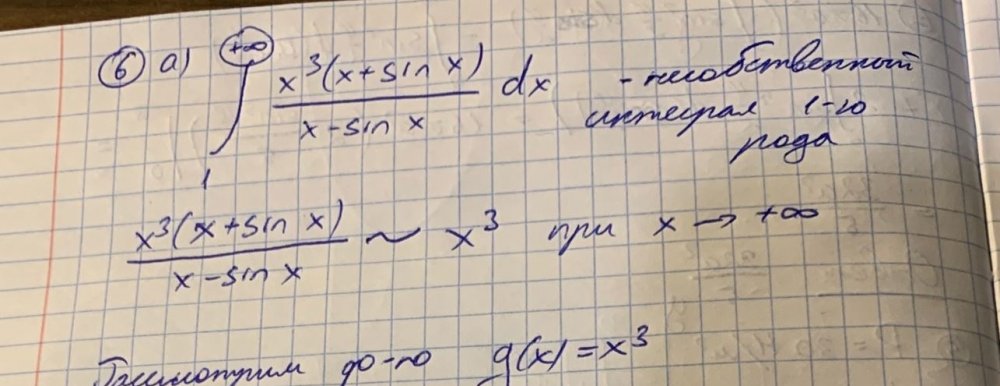 6 а) ∫₁^{+∞} x³(x+sin x)/(x-sin x) dx - несобственный
интеграл 1-го
рода
x³(x+sin x)/(x-sin x) ~ x³ при x → +∞
Рассмотрим ф-ю g(x)=x³